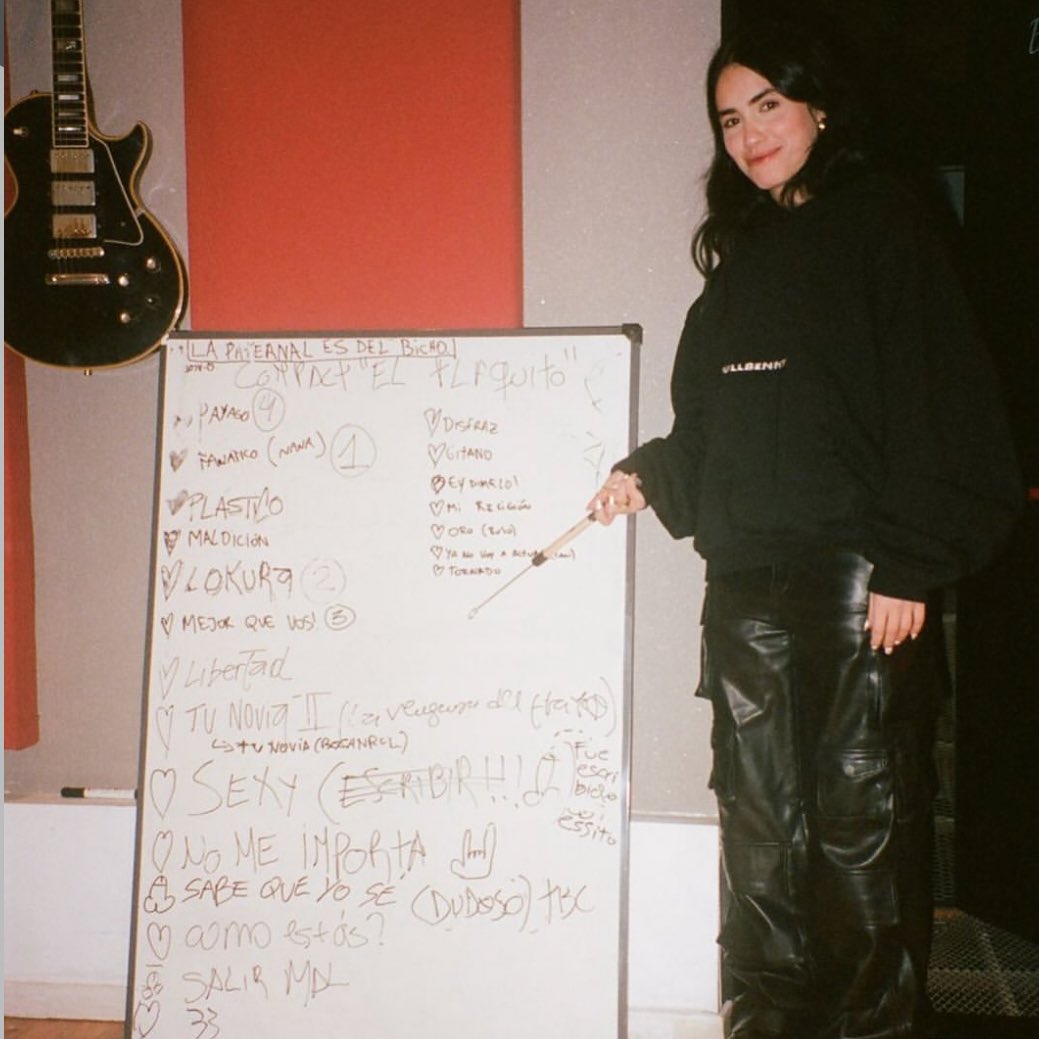 LA PATERNAL ES DEL BICHO!
COMPACT "EL FLAQUITO"
PAYASO 4
FANATICO (NANA) 1
PLASTICO
MALDICIÓN
LOKURA 2
MEJOR QUE VOS! 3
LiberTad
TU NOVIA II (La venganza del
↳ TU NOVIA (BOGANREL)
SEXY (ESCRIBIR!!!
Fue
escri
bielo
essito
NO ME IMPORTA
SABE QUE YO SE (DUDOSO) TBC
como estás?
SALIR MAL
33
DISFRAZ
GITANO
EY DIMELO!
Mi RELIGIÓN
ORO
YA NO VOY A
TORNADO